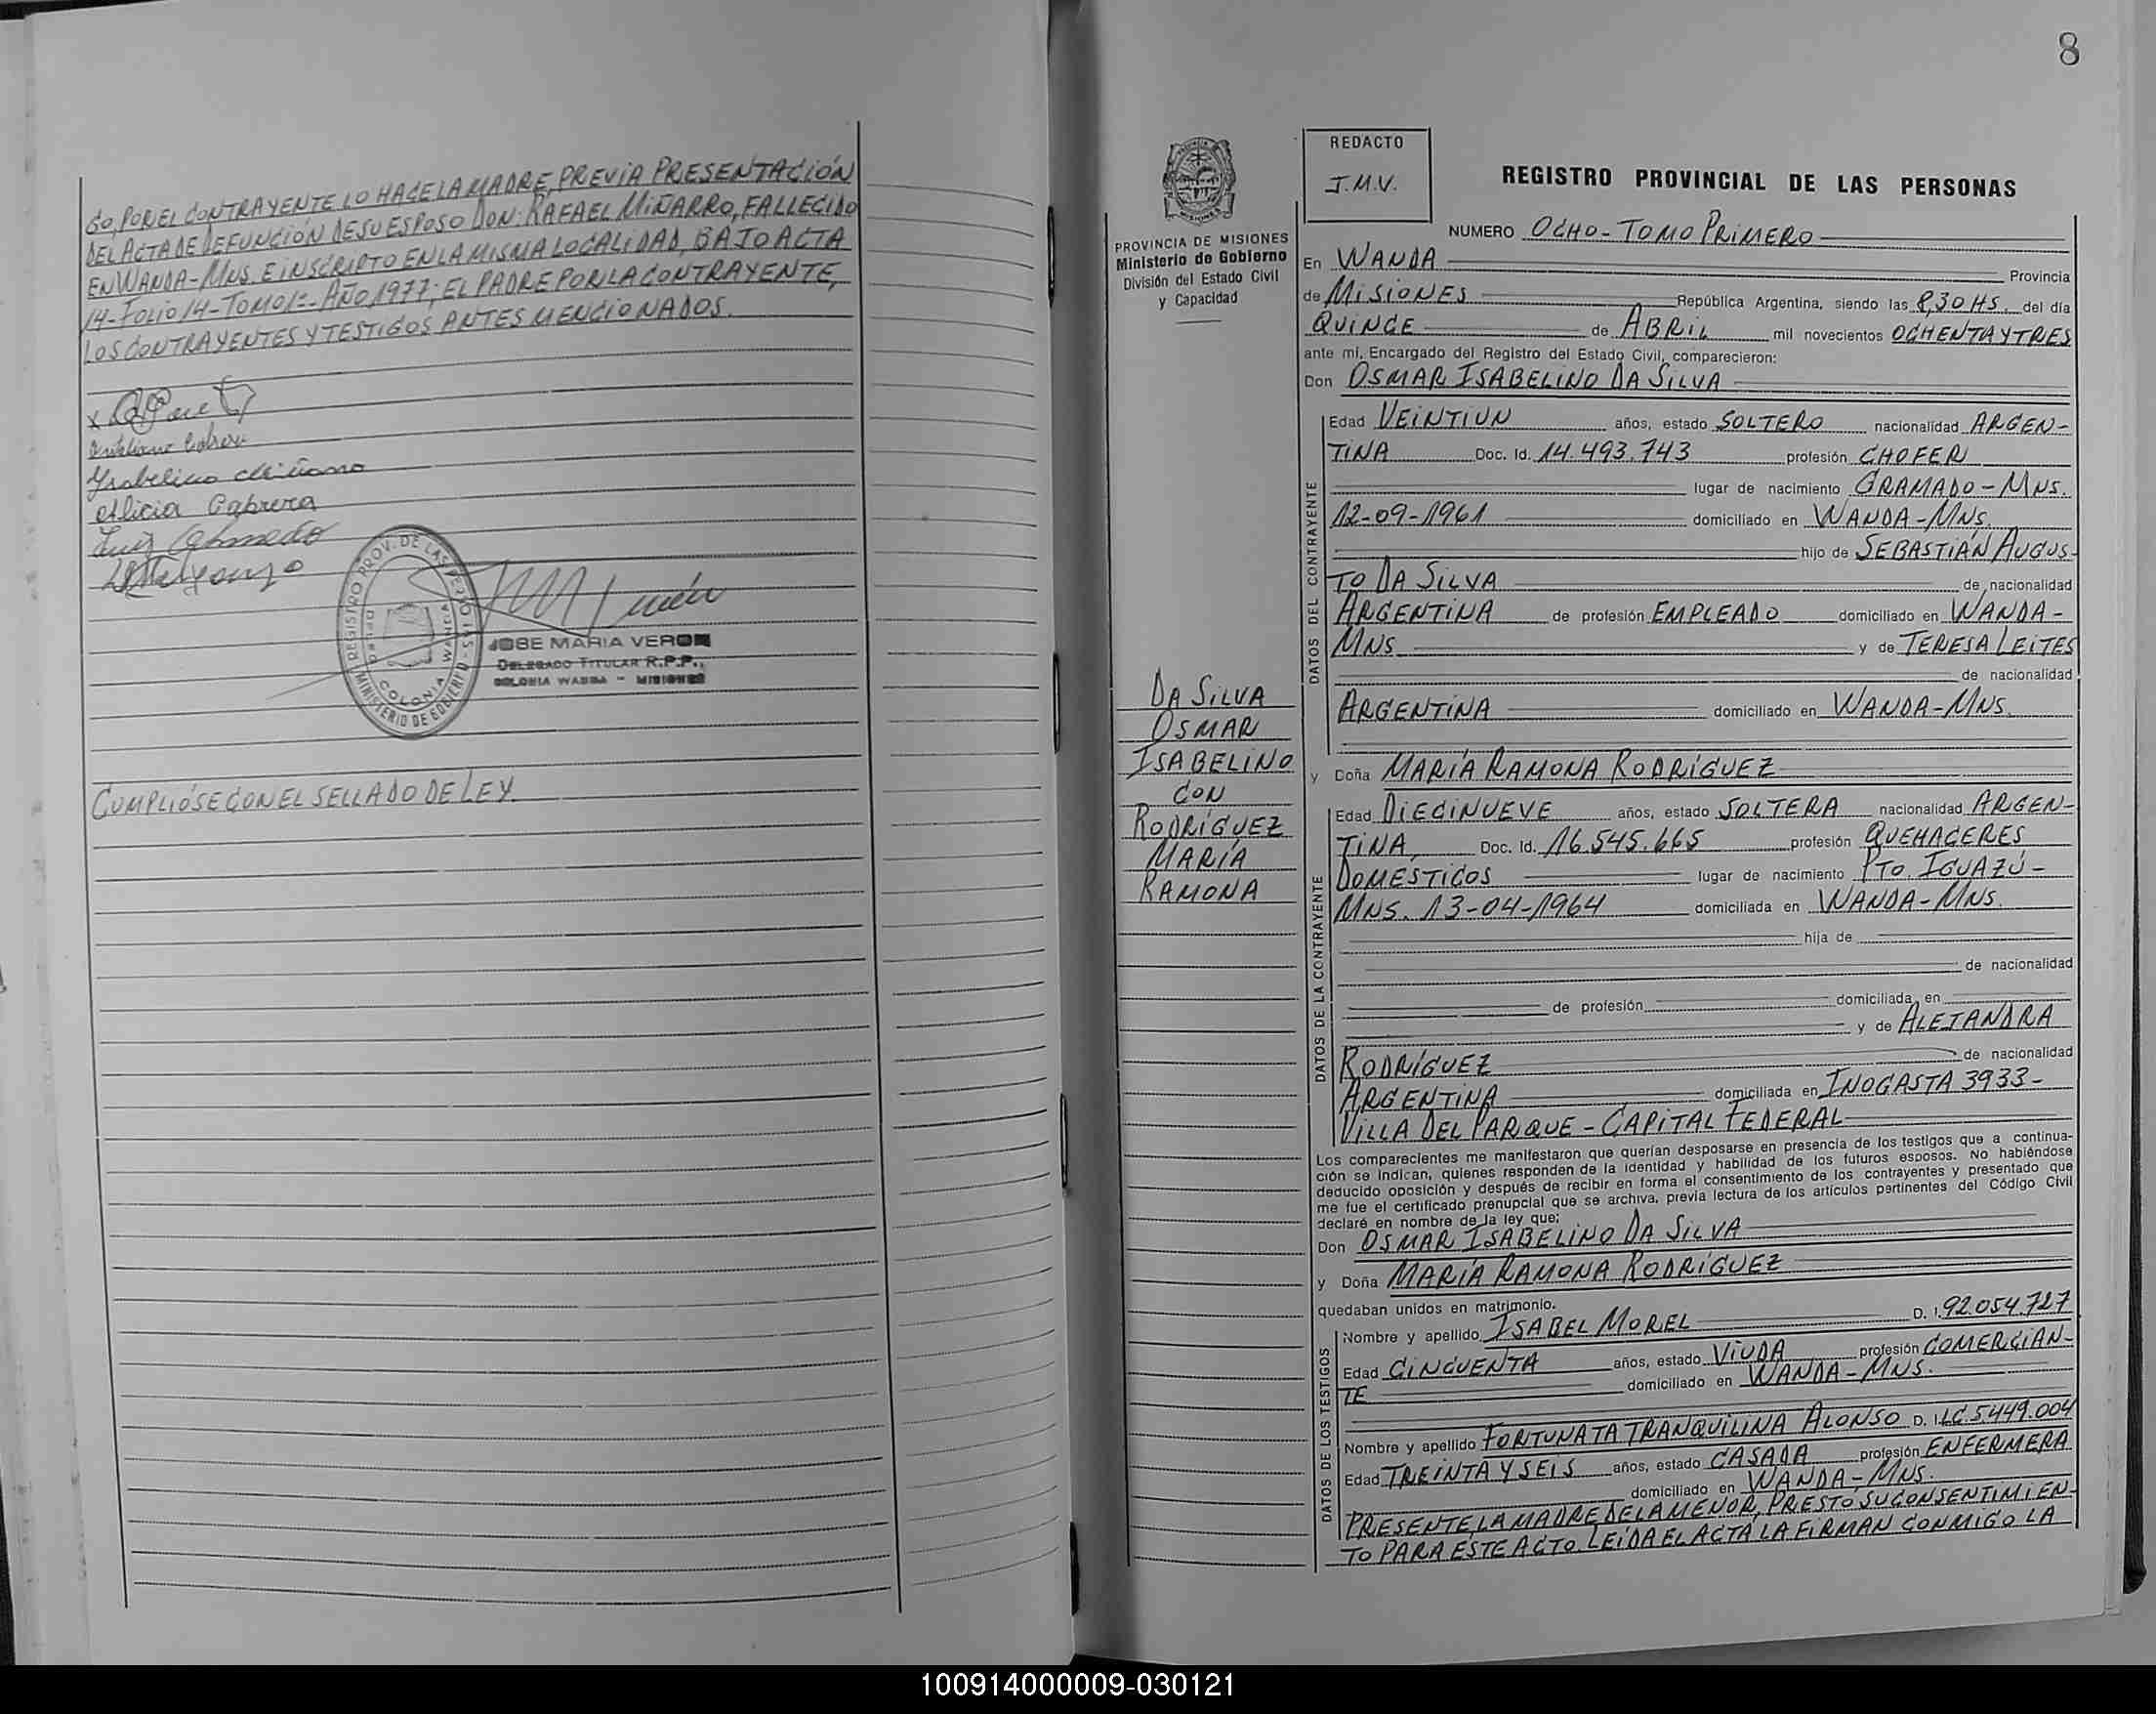 GO, POR EL CONTRAYENTE LO HACE LA MADRE, PREVIA PRESENTACIÓN
DEL ACTA DE DEFUNCIÓN DE SU ESPOSO DON: RAFAEL MIÑARRO, FALLECIDO
EN WANDA-MNS. E INSCRIPTO EN LA MISMA LOCALIDAD, BAJO ACTA
14-FOLIO 14-TOMO 1º-AÑO 1977; EL PADRE POR LA CONTRAYENTE,
LOS CONTRAYENTES Y TESTIGOS ANTES MENCIONADOS.
Alicia Cabrera
REGISTRO PROV. DE LAS PERSONAS
MINISTERIO DE GOBIERNO
COLONIA WANDA
JOSE MARIA VERON
DELEGADO TITULAR R.P.P.,
COLONIA WANDA - MISIONES
CUMPLIÓSE CON EL SELLADO DE LEY.
8
PROVINCIA DE MISIONES
Ministerio de Gobierno
División del Estado Civil
y Capacidad
DA SILVA
OSMAR
ISABELINO
CON
RODRÍGUEZ
MARÍA
RAMONA
REDACTO
J.M.V.
REGISTRO PROVINCIAL DE LAS PERSONAS
NUMERO OCHO-TOMO PRIMERO
En WANDA Provincia
de MISIONES República Argentina, siendo las 8,30 HS. del día
QUINCE de ABRIL mil novecientos OCHENTA Y TRES
ante mí, Encargado del Registro del Estado Civil, comparecieron:
Don OSMAR ISABELINO DA SILVA
DATOS DEL CONTRAYENTE
Edad VEINTIUN años, estado SOLTERO nacionalidad ARGEN-
TINA Doc. Id. 14.493.743 profesión CHOFER
lugar de nacimiento GRAMADO-MNS.
12-09-1961 domiciliado en WANDA-MNS.
hijo de SEBASTIÁN AUGUS-
TO DA SILVA de nacionalidad
ARGENTINA de profesión EMPLEADO domiciliado en WANDA-
MNS y de TERESA LEITES
de nacionalidad
ARGENTINA domiciliado en WANDA-MNS.
y Doña MARÍA RAMONA RODRÍGUEZ
DATOS DE LA CONTRAYENTE
Edad DIECINUEVE años, estado SOLTERA nacionalidad ARGEN-
TINA, Doc. Id. 16.545.665 profesión QUEHACERES
DOMESTICOS lugar de nacimiento PTO. IGUAZÚ-
MNS. 13-04-1964 domiciliada en WANDA-MNS.
hija de
de nacionalidad
de profesión domiciliada en
y de ALEJANDRA
RODRÍGUEZ de nacionalidad
ARGENTINA domiciliada en INOGASTA 3933-
VILLA DEL PARQUE-CAPITAL FEDERAL
Los comparecientes me manifestaron que querían desposarse en presencia de los testigos que a continua-
ción se indican, quienes responden de la identidad y habilidad de los futuros esposos. No habiéndose
deducido oposición y después de recibir en forma el consentimiento de los contrayentes y presentado que
me fue el certificado prenupcial que se archiva, previa lectura de los artículos pertinentes del Código Civil
declaré en nombre de la ley que:
Don OSMAR ISABELINO DA SILVA
y Doña MARÍA RAMONA RODRÍGUEZ
quedaban unidos en matrimonio.
DATOS DE LOS TESTIGOS
Nombre y apellido ISABEL MOREL D. I. 92.054.727
Edad CINCUENTA años, estado VIUDA profesión COMERCIAN-
TE domiciliado en WANDA-MNS.
Nombre y apellido FORTUNATA TRANQUILINA ALONSO D. I. LC. 5.449.004
Edad TREINTA Y SEIS años, estado CASADA profesión ENFERMERA
domiciliado en WANDA-MNS.
PRESENTE LA MADRE DE LA MENOR, PRESTO SU CONSENTIMIEN-
TO PARA ESTE ACTO. LEÍDA EL ACTA LA FIRMAN CONMIGO LA
100914000009-030121